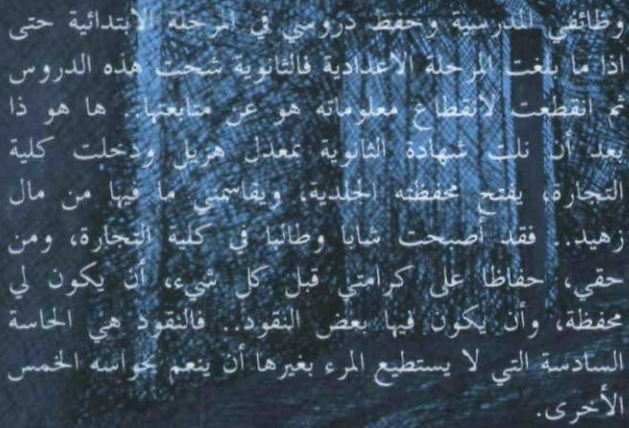 وظائفي المدرسية وحفظ دروسي في المرحلة الابتدائية حتى
اذا ما بلغت المرحلة الاعدادية فالثانوية شحت هذه الدروس
ثم انقطعت لانقطاع معلوماته هو عن متابعتها.. ها هو ذا
بعد أن نلت شهادة الثانوية بمعدل هزيل ودخلت كلية
التجارة، يفتح محفظته الجلدية، ويقاسمني ما فيها من مال
زهيد.. فقد أصبحت شابا وطالبا في كلية التجارة، ومن
حقي، حفاظا على كرامتي قبل كل شيء، أن يكون لي
محفظة، وأن يكون فيها بعض النقود.. فالنقود هي الحاسة
السادسة التي لا يستطيع المرء بغيرها أن ينعم بحواسه الخمس
الأخرى.